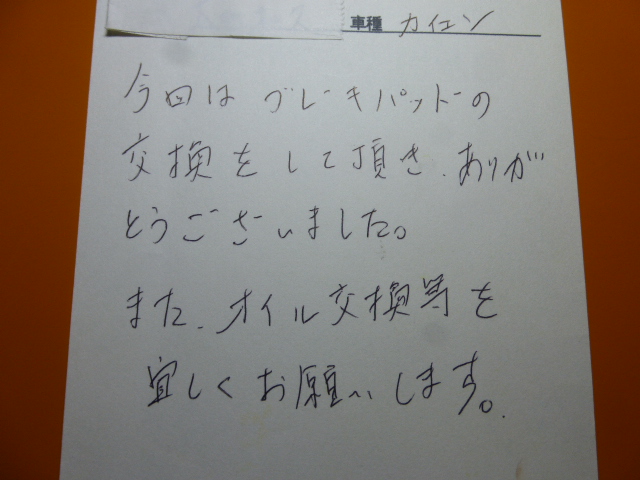 車種 カイエン
今回は ブレーキパットの
交換をして頂き、ありが
とうございました。
また、オイル交換等を
宜しくお願いします。